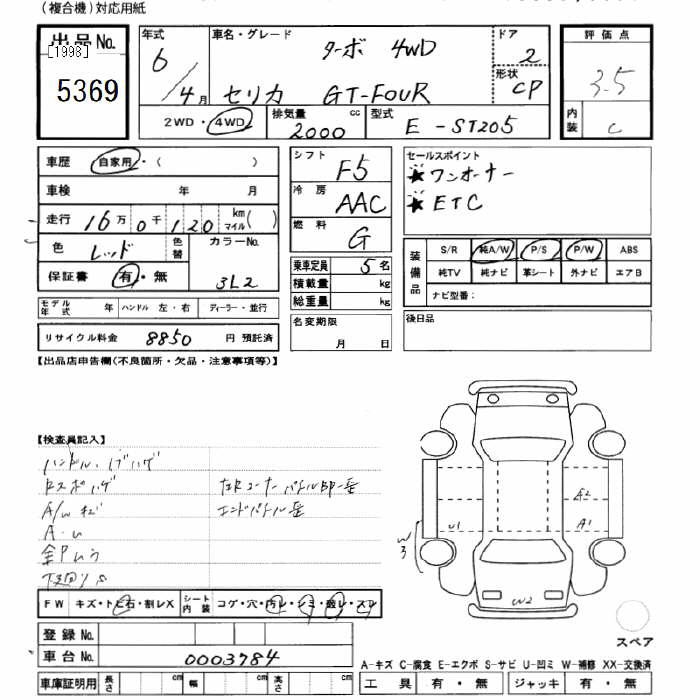 (複合機)対応用紙
出品No.
[1998]
5369
年式 車名・グレード ドア 評価点
6 ターボ 4WD 2 3.5
/4月 セリカ GT-FOUR 形状 CP
2WD・4WD 排気量 2000 cc 型式 E-ST205 内装 C
車歴 自家用・( )
シフト F5
セールスポイント
車検 年 月
冷房 AAC
★ワンオーナー
★ETC
走行 16万0千120 km マイル( )
燃料 G
色 レッド 色替 カラーNo. 3L2
保証書 有・無
乗車定員 5名
積載量 kg
総重量 kg
装備品 S/R 純A/W P/S P/W ABS
純TV 純ナビ 革シート 外ナビ エアB
ナビ型番:
モデル年式 年 ハンドル 左・右 ディーラー・並行
名変期限 月 日
後日品
リサイクル料金 8850 円 預託済
【出品店申告欄(不良箇所・欠品・注意事項等)】
【検査員記入】
A/W キズ
エンドパネル
W3 U1 A2 A1
W2
FW キズ・トビ石・割レX シート内装 コゲ・穴・汚レ・シミ・破レ・スレ
登録No.
車台No. 0003784
スペア
A-キズ C-腐食 E-エクボ S-サビ U-凹ミ W-補修 XX-交換済
車庫証明用 長さ cm 幅 cm 高さ cm 工具 有・無 ジャッキ 有・無